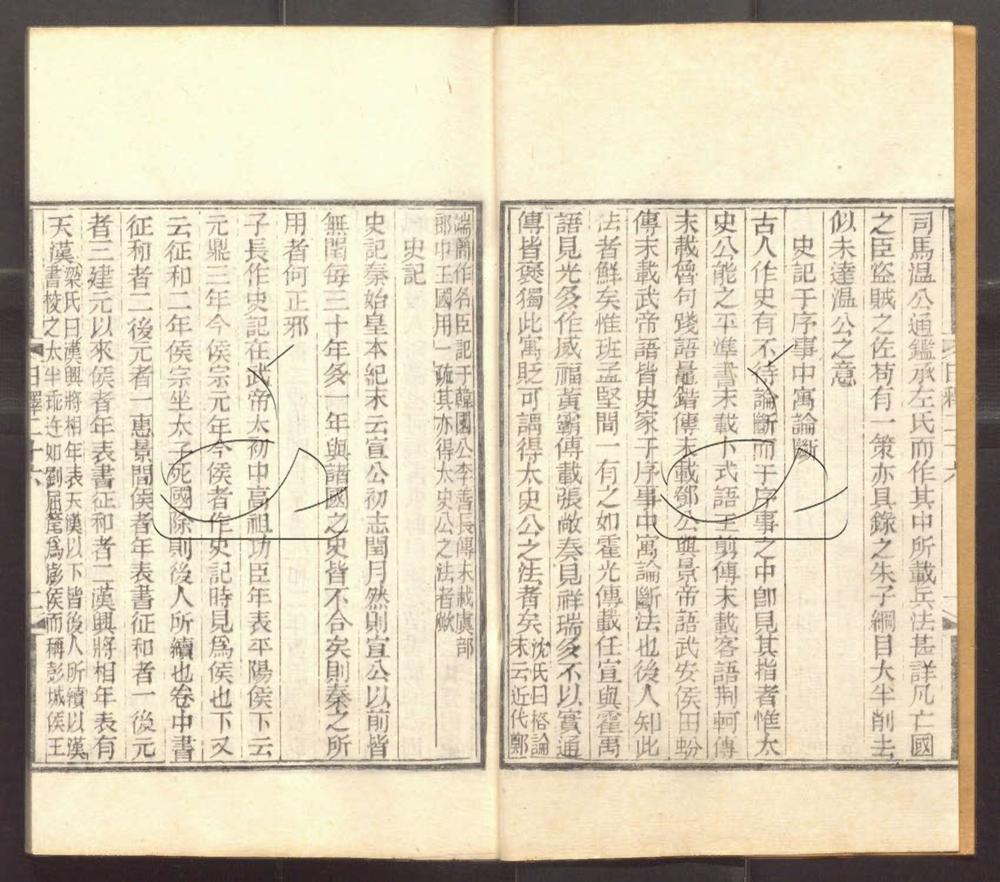 司馬温公通鑑承左氏而作其中所載兵法甚詳凡亡國
之臣盜賊之佐苟有一策亦具錄之朱子綱目大半削去
似未達温公之意
史記于序事中寓論斷
古人作史有不待論斷而于序事之中卽見其指者惟太
史公能之平準書末載卜式語王翦傳末載客語荆軻傳
末載魯句踐語鼂錯傳末載鄧公與景帝語武安侯田蚡
傳末載武帝語皆史家于序事中寓論斷法也後人知此
法者鮮矣惟班孟堅間一有之如霍光傳載任宣與霍禹
語見光多作威福黃霸傳載張敞奏見祥瑞多不以實通
傳皆褒獨此寓貶可謂得太史公之法者矣沈氏曰格論
末云近代鄭
端簡作名臣記于韓國公李善長傳末載虞部
郎中王國用一疏其亦得太史公之法者歟
史記
史記秦始皇本紀末云宣公初志閏月然則宣公以前皆
無閏每三十年多一年與諸國之史皆不合矣則秦之所
用者何正邪
子長作史記在武帝太初中高祖功臣年表平陽侯下云
元鼎三年今侯宗元年今侯者作史記時見爲侯也下又
云征和二年侯宗坐太子死國除則後人所續也卷中書
征和者二後元者一惠景間侯者年表書征和者一後元
者三建元以來侯者年表書征和者二漢興將相年表有
天漢梁氏曰漢興將相年表天漢以下皆後人所續以漢
書校之大半乖迕如劉屈氂爲澎侯而稱彭城侯王
日釋二十六
二